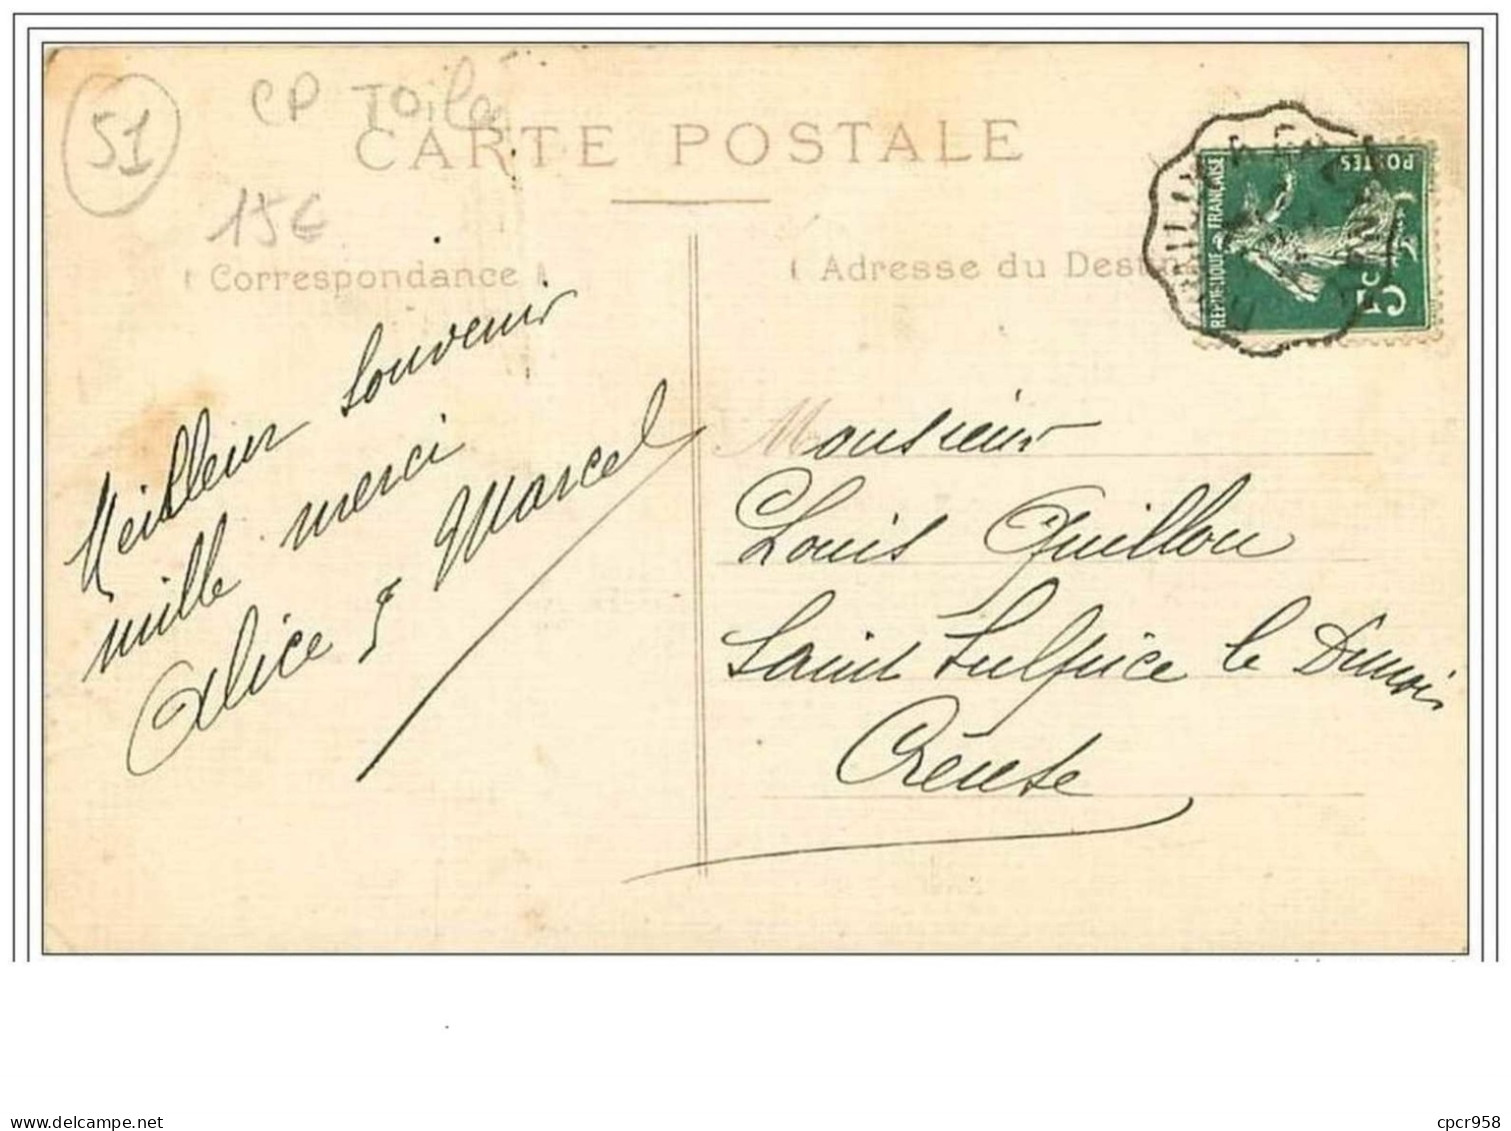 51
CP Toilé
15€
CARTE POSTALE
Correspondance
Adresse du Destin
REPUBLIQUE FRANÇAISE
POSTES
5c
Meilleur Souvenir
mille merci
Alice & Marcel
Monsieur
Louis Guillou
Saint Sulpice le Dunois
Creuse
delcampe.net
cpcr958